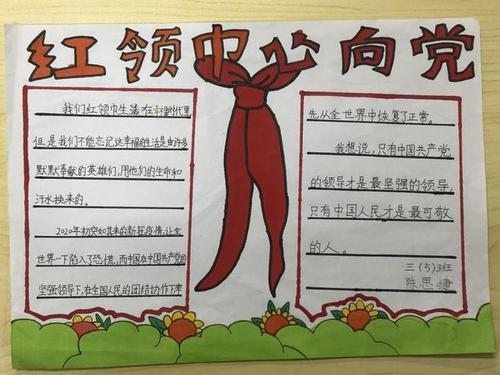 红领巾心向党
我们红领巾生活在幸福时代里
但是我们不能忘记这幸福生活是由许多
默默奉献的英雄们,用他们的生命和
汗水换来的。
2020年初突如其来的新冠疫情,让全
世界一下陷入了恐慌,而中国在中国共产党的
坚强领导下,在全国人民的团结协作下率
先从全世界中恢复了正常。
我想说,只有中国共产党
的领导才是最坚强的领导,
只有中国人民才是最可敬
的人。
三(5)班
陈思捷